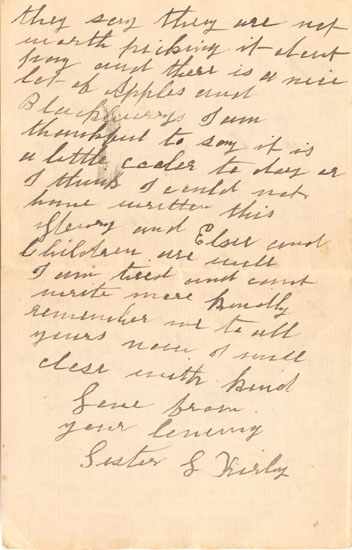 they say they are not
worth picking it dont
pay and there is a nice
lot of Apples and
Blackberrys I am
thankful to say it is
a little cooler to day or
I think I could not
have written this
and Elsie and
Children are well
I am tired and cant
write more kindly
remember me to all
yours now I will
close with kind
Love from
your loving
Sister S Kirby